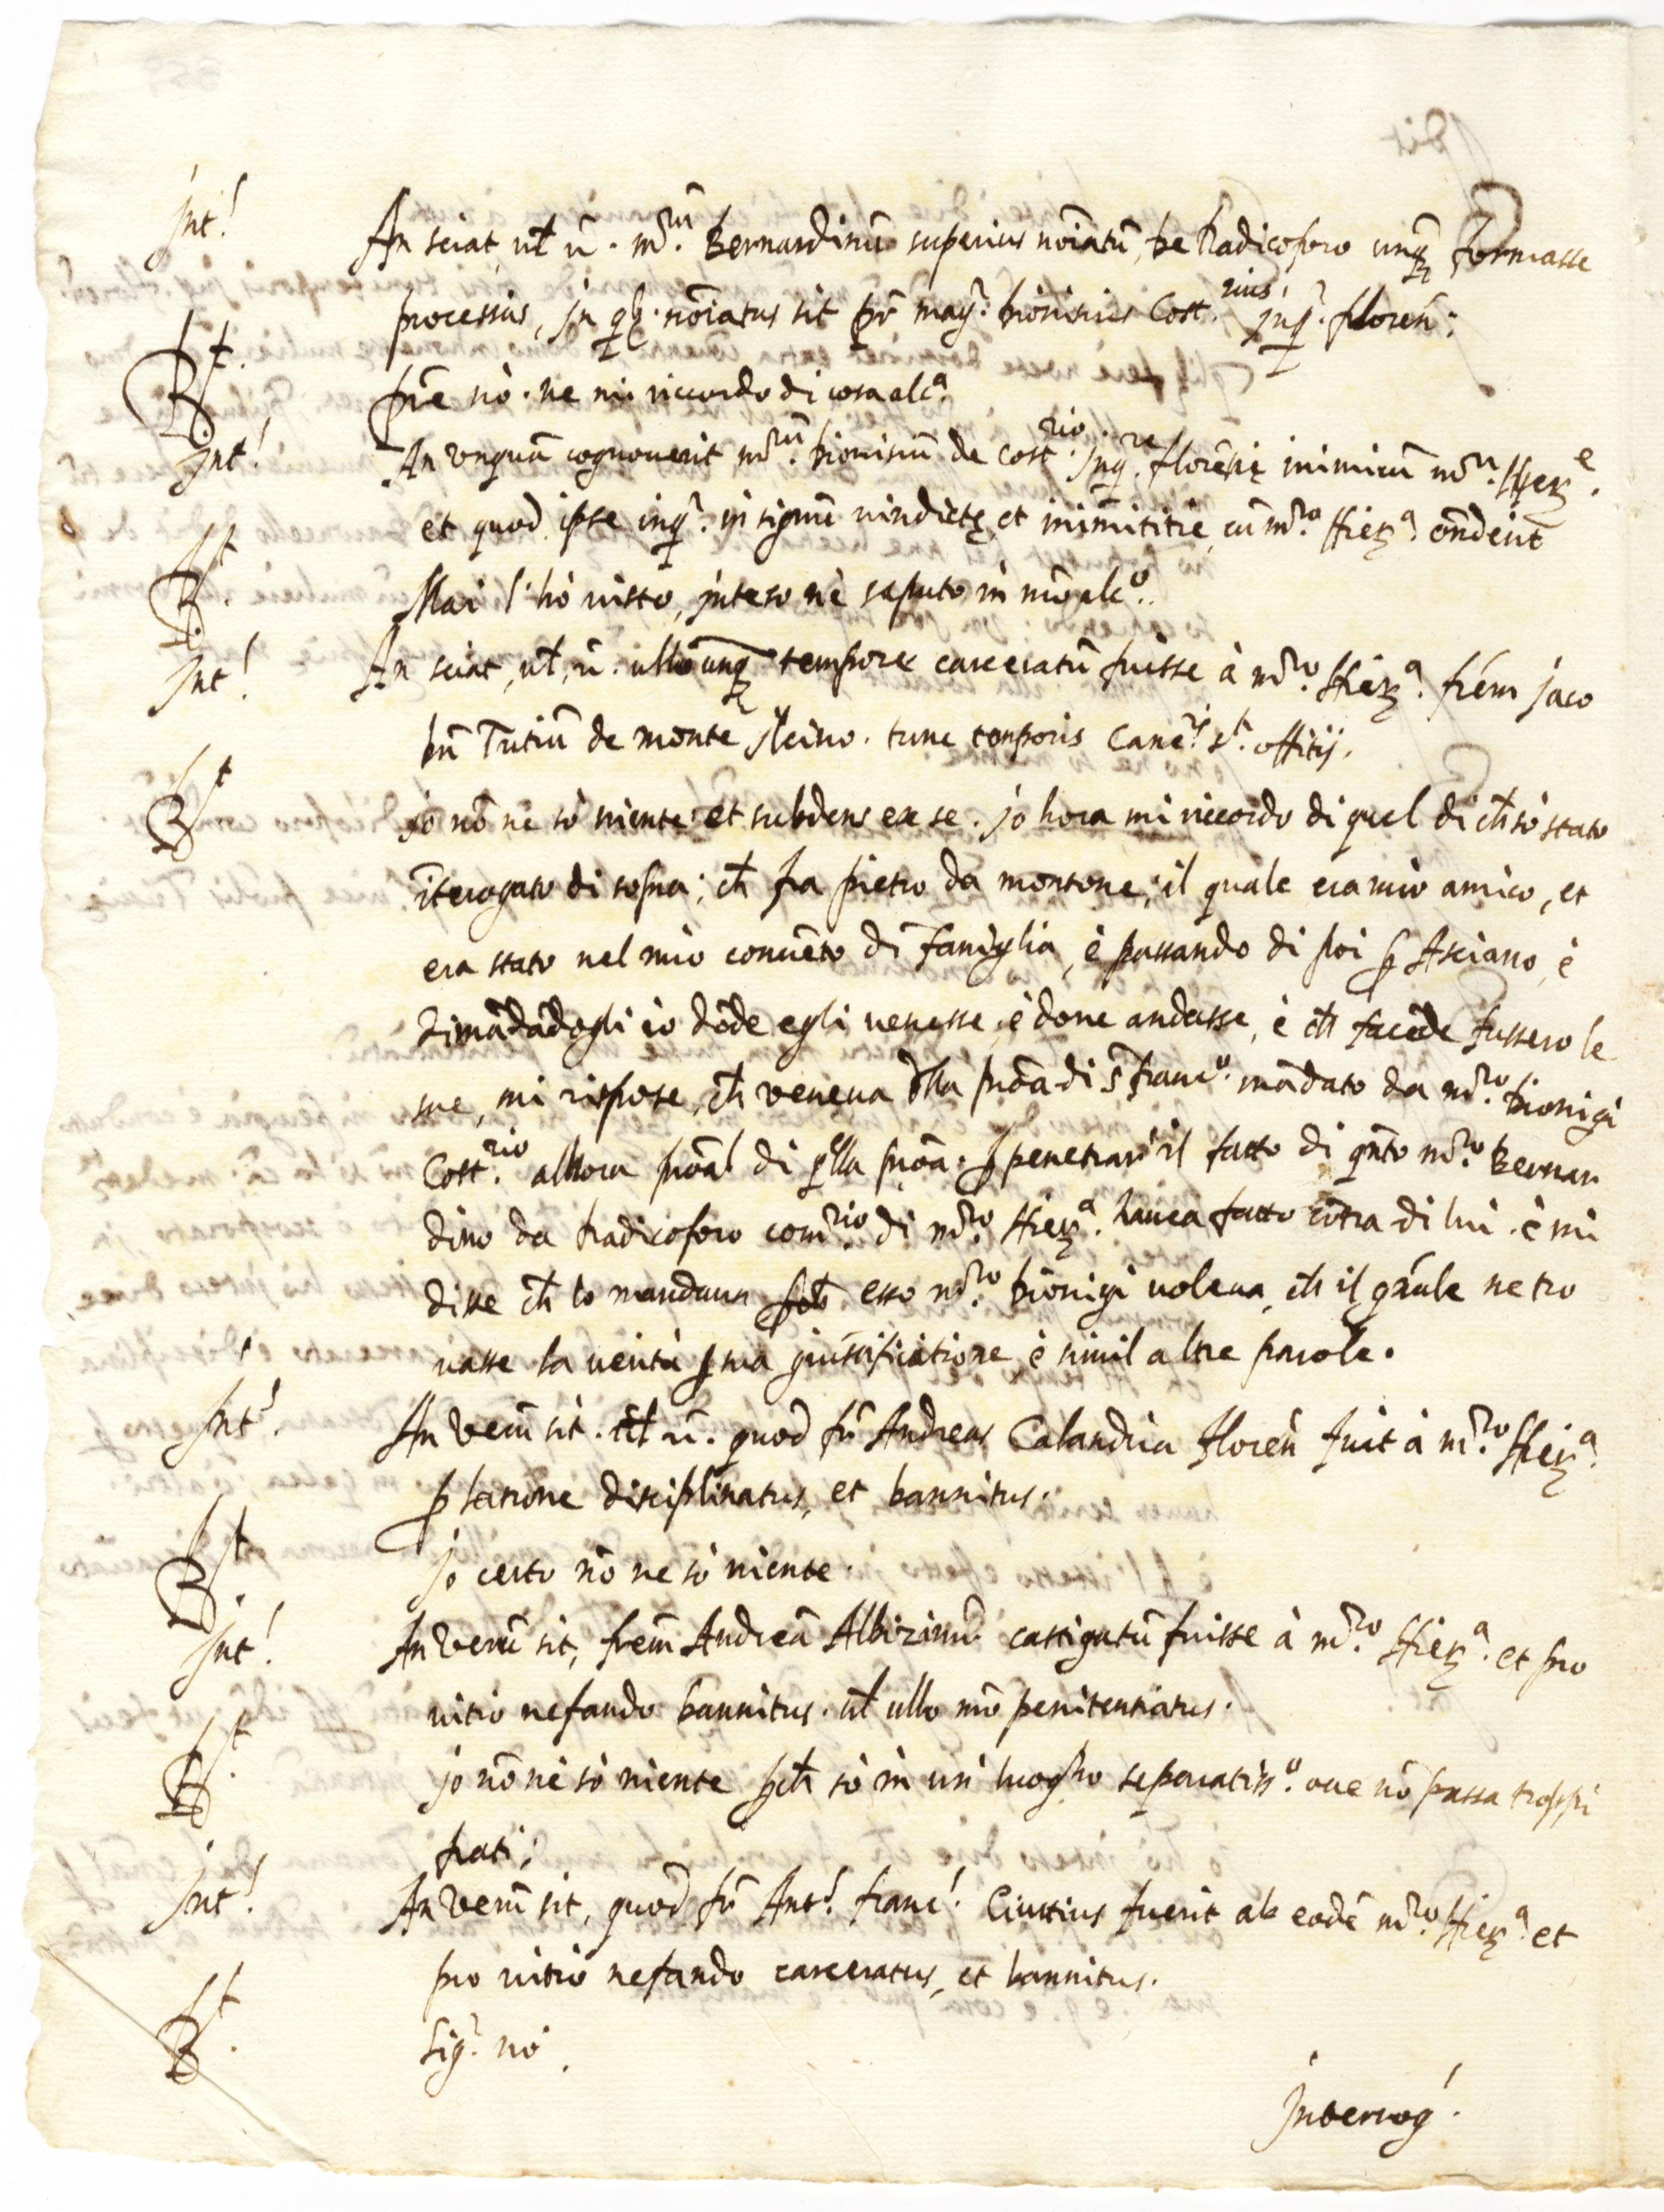 Int.
An sciat, ul̃ ñ. m.rum Bernardinũ superius noĩatũ, de Radicoforo unq̃ formasse
processus, in qb. noĩatus sit pr̃ mag.r Dionisius Cost.rius inq.r floreñ:
R.t
pr̃e nò. ne mi riccordo di cosa alc.a
Int.
An unquã cognouerit m.rum Dionisiũ de Cost.rio inq.re florẽtię inimicũ m.ri Hier.e
et quod ipse inq.r in signũ vindictę et inimititie cũ m.ro Hier.a oñderit
R.t
Mai l'hò visto, inteso nè saputo in mõ alc.o
Int.
An sciat, ul̃, ñ. ullo unq̃ tempore carceratũ fuisse à m.ro Hier.a frẽm Jaco
bũ Tutiũ de monte Ilcino. tunc temporis Canc.s s.ti offitij.
R.t
Io nõ ne sò niente et subdens ex se. Io hora mi riccordo di quel di ch̃ sò stato
ĩterogato di sopra; ch̃ fra pietro da montone, il quale era mio amico, et
era stato nel mio conuẽto di famiglia, è passando di poi p Asciano, è
dimãdãdogli io dõde egli venesse, è doue andasse, è ch̃ facẽde fussero le
sue, mi rispose, ch̃ veneua dlla proã di s̃ franc.o mãdato da m.ro Dionigi
Cost.rio allhora proãl di qlla proã. p penetrar il fatto di qñto m.ro Bernar
dino da Radicoforo com.rio di m.ro Hier.a hauea fatto cõtra di lui. è mi
disse ch̃ lo mandaua pch̃ esso m.ro Dionigi uoleua, ch̃ il gñale ne tro
uasse la verità p sua giustificatione è simil altre parole.
Int.
An verũ sit. ul̃ ñ. quod fr̃ Andreas Calandria floreñ fuit à m.ro Hier.a
p latrone disciplinatus, et bannitus.
R.t
Io certo nõ ne sò niente.
Int.
An verũ sit, frẽm Andreã Albizinũ castigatũ fuisse à m.ro Hier.a et pro
vitio nefando bannitus. ul̃ ullo mõ penitentiatus.
R.t
Io nõ nè sò niente pch̃ sò in un' luogho separatiss.o oue nõ passa troppi
frati;
Int.
An verũ sit, quod fr̃ Ant.s franc.s Ciuttius fuerit ab eodẽ m.ro Hier.a et
pro vitio nefando carceratus, et bannitus.
R.t
Sig.r nò.
Interrog.